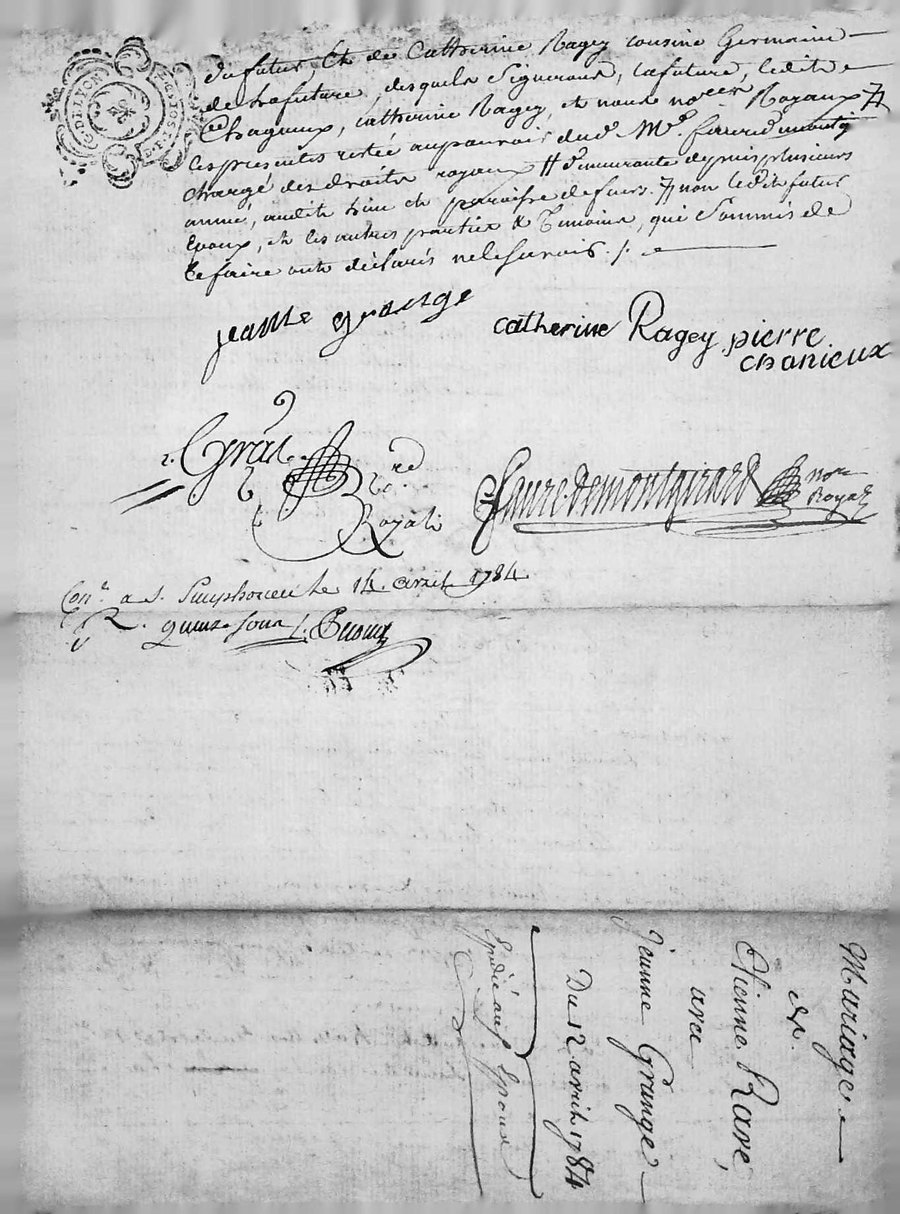 G. D LYON
du futur, Et de Catherine Ragey cousine Germaine
de la future, desquels Signeront, la future, ledit
Chagnieux, catherine Ragey, et nous no.res Royaux
les presentes restée au pouvoir dud. M.e faure d
chargé des droits royaux # demeurante depuis plusieurs
année, audite lieu et paroisse de fuers. non ledit futur
Epoux, et les autres parties & temoins, qui Sommés de
le faire onts déclarés ne le savoir ./.
jeanne grange
catherine Ragey pierre
chanieux
Gras
Royal
faure demontgirard no.re
Royal
Con.le a S. Simphorien le 14 avril 1784
R. quinze sous
Mariage
de
Etienne Rave,
avec
Jeanne Grange
Du 12 avril 1784
Expedié aux Epoux